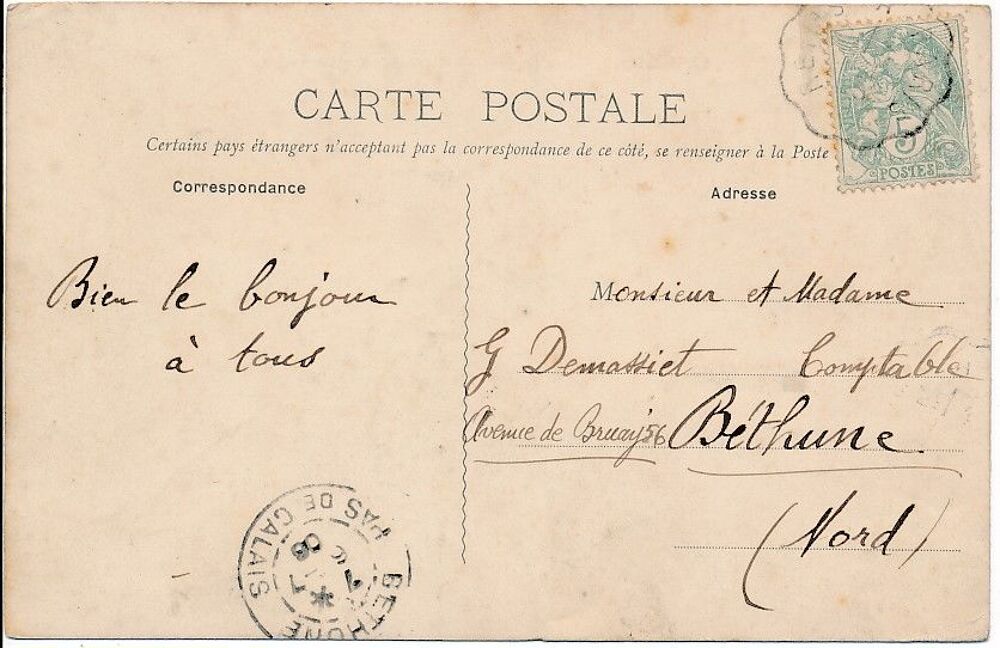 CARTE POSTALE
Certains pays étrangers n'acceptent pas la correspondance de ce côté, se renseigner à la Poste
Correspondance
Adresse
5
POSTES
Bien le bonjour
à tous
Monsieur et Madame
G Demassiet Comptable
Avenue de Bruay 56 Béthune
(Nord)
BETHUNE
PAS DE CALAIS